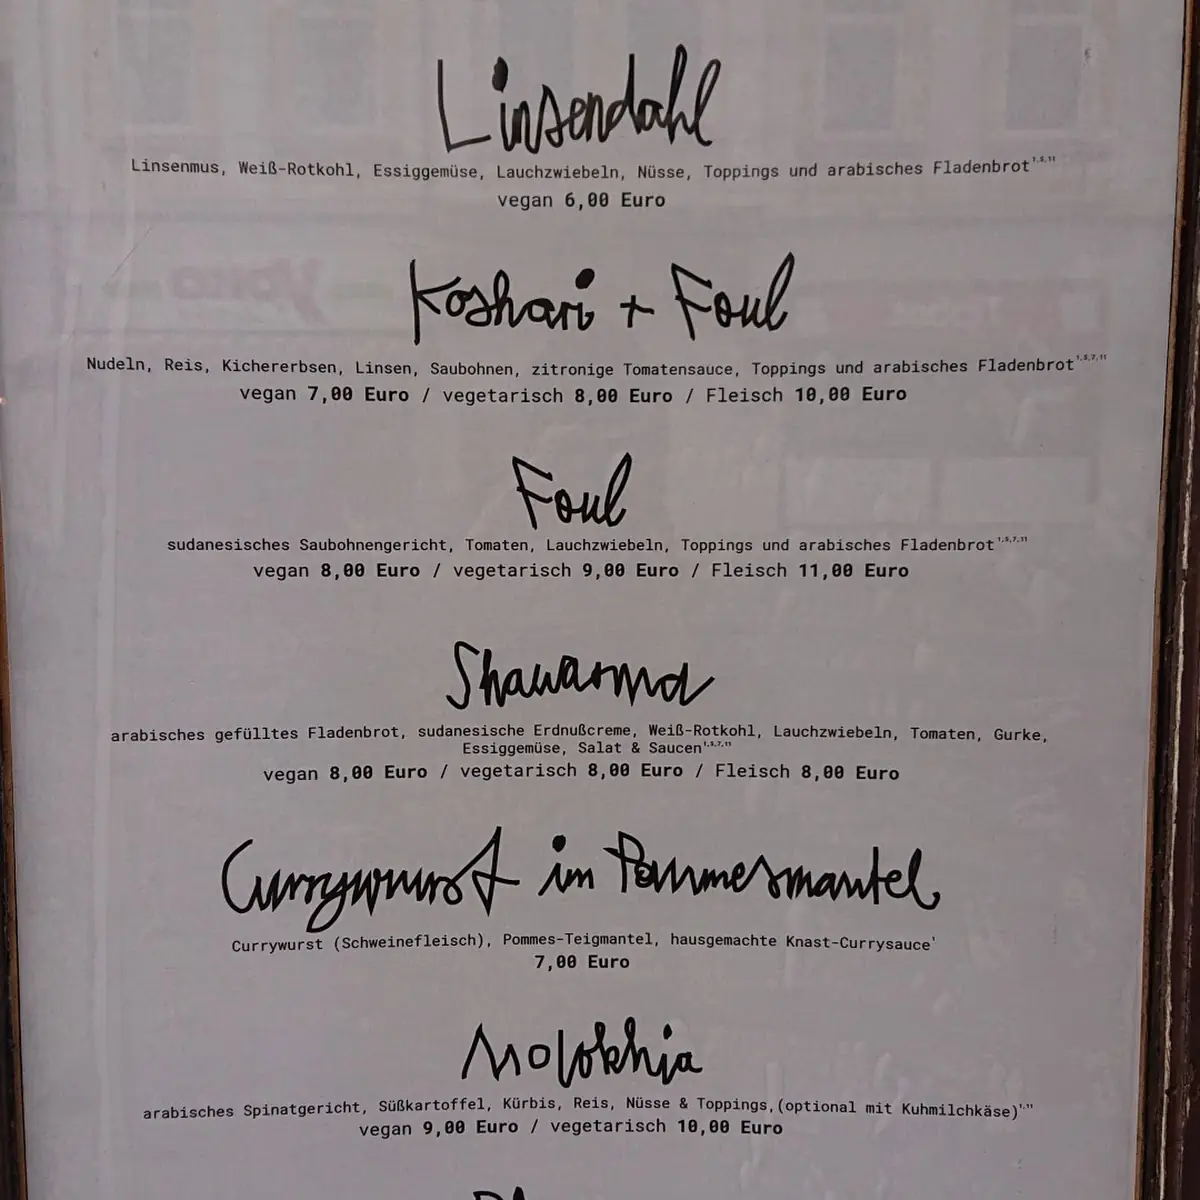 Linsendahl
Linsenmus, Weiß-Rotkohl, Essiggemüse, Lauchzwiebeln, Nüsse, Toppings und arabisches Fladenbrot1,5,11
vegan 6,00 Euro
Koshari + Foul
Nudeln, Reis, Kichererbsen, Linsen, Saubohnen, zitronige Tomatensauce, Toppings und arabisches Fladenbrot1,5,7,11
vegan 7,00 Euro / vegetarisch 8,00 Euro / Fleisch 10,00 Euro
Foul
sudanesisches Saubohnengericht, Tomaten, Lauchzwiebeln, Toppings und arabisches Fladenbrot1,5,7,11
vegan 8,00 Euro / vegetarisch 9,00 Euro / Fleisch 11,00 Euro
Shawarma
arabisches gefülltes Fladenbrot, sudanesische Erdnußcreme, Weiß-Rotkohl, Lauchzwiebeln, Tomaten, Gurke,
Essiggemüse, Salat & Saucen1,5,7,11
vegan 8,00 Euro / vegetarisch 8,00 Euro / Fleisch 8,00 Euro
Currywurst im Pommesmantel
Currywurst (Schweinefleisch), Pommes-Teigmantel, hausgemachte Knast-Currysauce1
7,00 Euro
Molokhia
arabisches Spinatgericht, Süßkartoffel, Kürbis, Reis, Nüsse & Toppings,(optional mit Kuhmilchkäse)1,11
vegan 9,00 Euro / vegetarisch 10,00 Euro